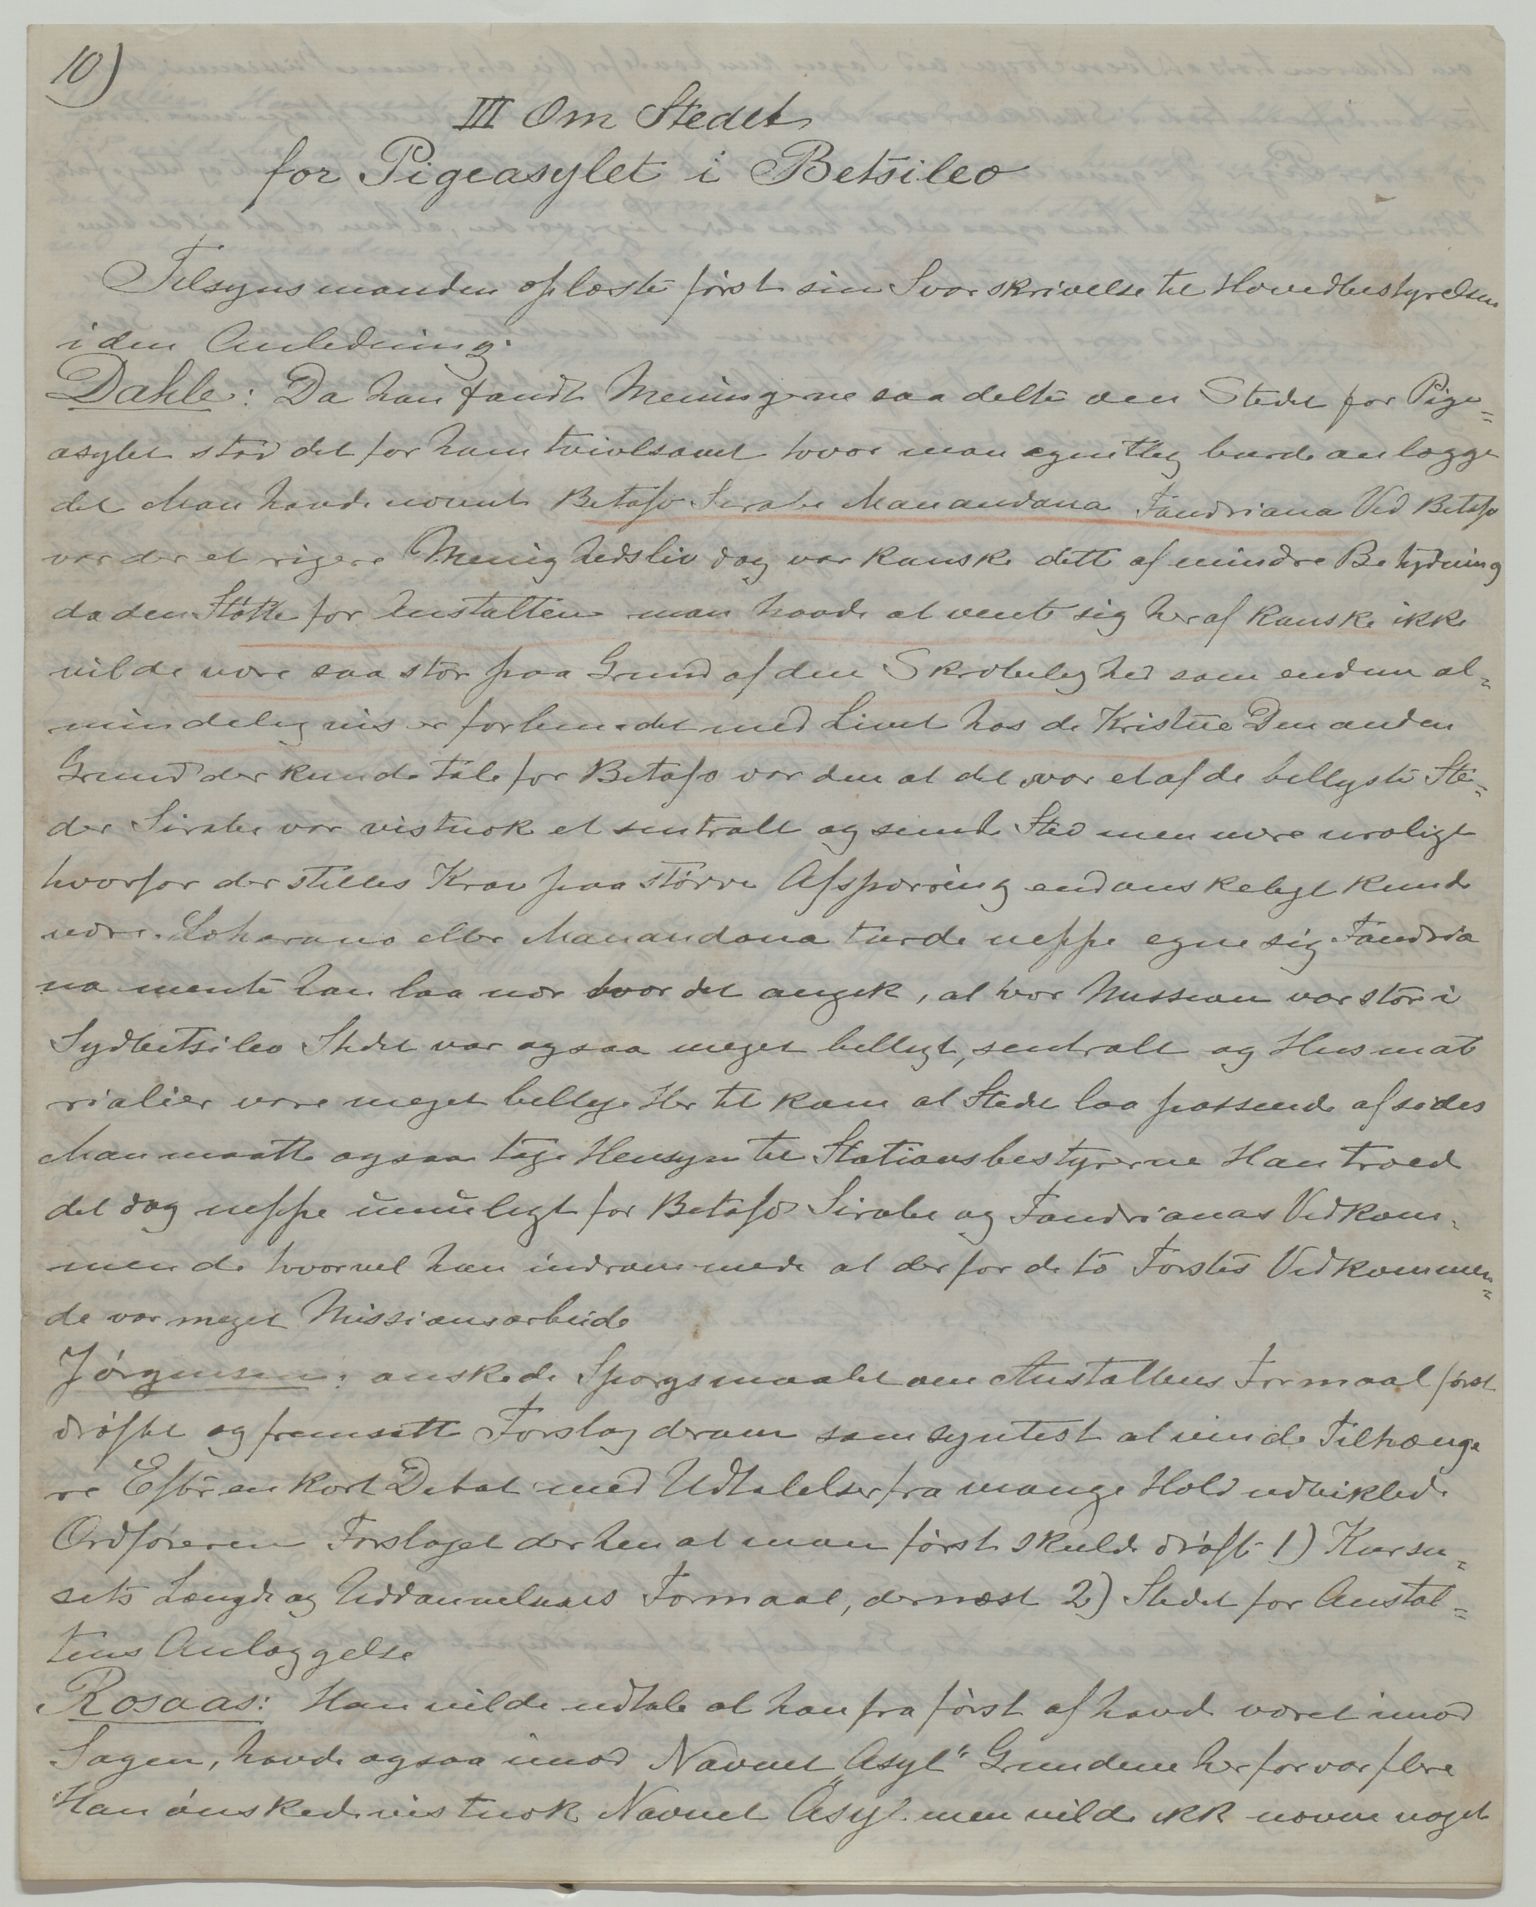 10)
III Om Stedet
for Pigeasylet i Betsileo
Tilsynsmanden oplæste først sin Svarskrivelse til Hovedbestyrelsen
i den Anledning.
Dahle: Da han fandt Meningerne saa delte om Stedet for Pige=
asylet stod det for ham tvivlsomt hvor man egentlig burde anlægge
det Man havde nævnt Betafo Sirabe Manandona Fandriana Ved Betafo
var der et rigere Menighedsliv dog var kanske dette af mindre Betydning
da den Støtte for Anstalten man havde at vente sig heraf kanske ikke
vilde være saa stor paa Grund af den Skrøbelighed som endnu al=
mindeligvis er forbundet med Livet hos de Kristne Den anden
Grund der kunde tale for Betafo var den at det var et af de billigste Ste=
der Sirabe var vistnok et sentralt og sundt Sted men mere uroligt
hvorfor der stilles Krav paa större Afspærring end ønskeligt kunde
være. Loharano eller Manandona turde neppe egne sig Fandria
na mente han laa nær hvor det angik, at vor Mission var stor i
Sydbetsileo Stedet var ogsaa meget billigt, sentralt og Husmate
rialier vare meget billige Her til kom at Stedet laa passende afsides
Man maatte ogsaa tage Hensyn til Stationsbestyrerne Han troede
det dog neppe umuligt for Betafo Sirabe og Fandrianas Vedkom=
mende hvorvel han indrømmede at der for de to Førstes Vedkommen=
de var meget Missionsarbeide
Jörgensen: ønskede Spørgsmaalet om Anstaltens Formaal først
drøftet og fremsatte Forslag derom som syntest at vinde Tilhænge
re Efter en kort Debat med Udtalelser fra mange Hold udviklede
Ordføreren Forslaget derhen at man først skulde drøfte 1) Kursu=
sets Længde og Uddannelsens Formaal, dernæst 2) Stedet for Anstal=
tens Anlæggelse
Rosaas: Han vilde udtale at han fra først af havde været imod
Sagen, havde ogsaa imod Navnet "Asyl" Grundene herfor var flere
Han ønskede vistnok Navnet Asyl men vilde ikk nævne noget